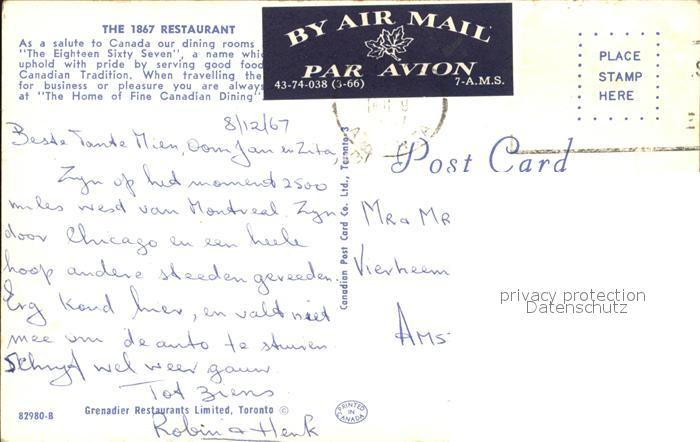 THE 1867 RESTAURANT
As a salute to Canada our dining rooms
"The Eighteen Sixty Seven", a name whic
uphold with pride by serving good food
Canadian Tradition. When travelling the
for business or pleasure you are always
at "The Home of Fine Canadian Dining"
BY AIR MAIL
PAR AVION
43-74-038 (3-66) 7-A.M.S.
PLACE
STAMP
HERE
8/12/67
Beste Tante Mien, Oom Jan en Zita,
Zijn op het moment 2500
miles west van Montreal. Zijn
door Chicago en een heele
hoop andere steeden gereeden.
Erg koud hier, en valt niet
mee om de auto te sturen.
Schrijf wel weer gauw.
Tot ziens
Robin & Henk
Post Card
Mr & Mr
Vierheem
Ams
privacy protection
Datenschutz
Canadian Post Card Co. Ltd., Toronto 3
82980-B Grenadier Restaurants Limited, Toronto ©
PRINTED IN CANADA